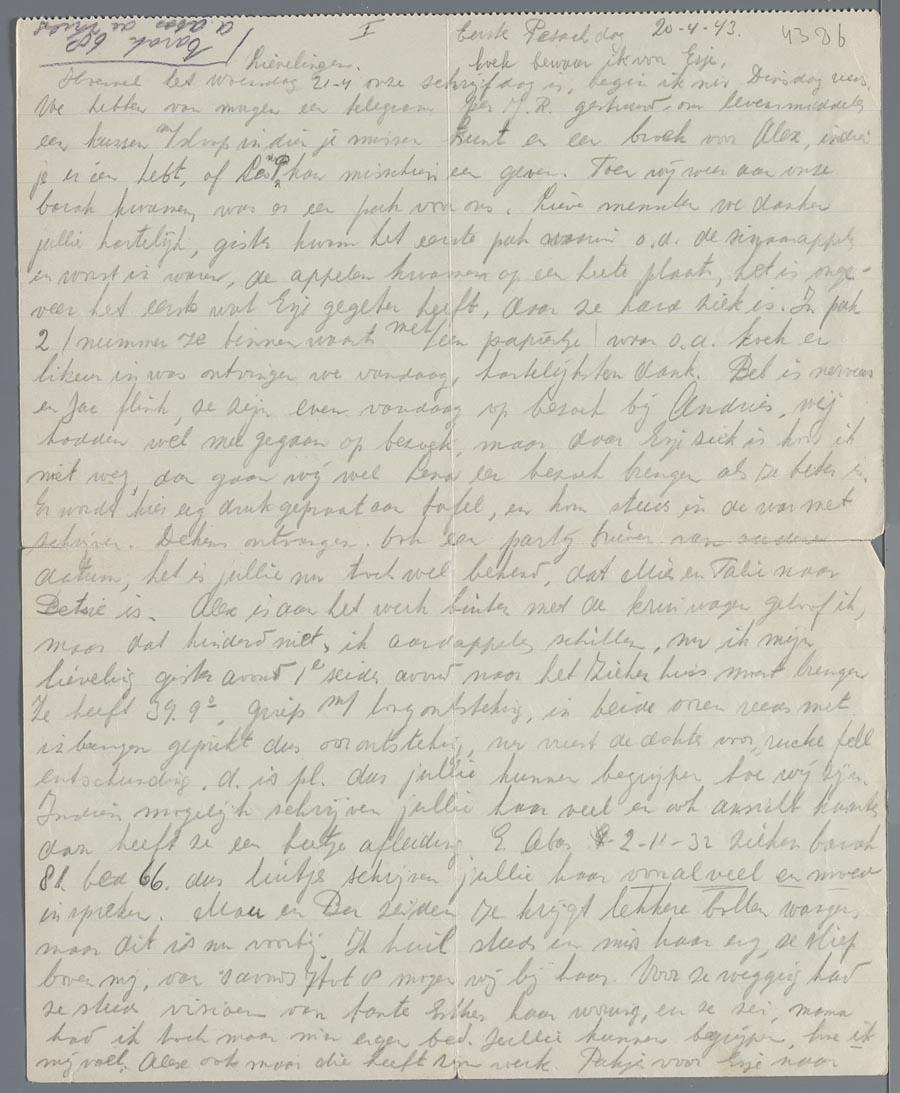 I Eerste Pesach dag 20-4-43. 4386
barak 60
Lievelingen. koek bewaar ik voor Esje.
Hoewel het woensdag 21-4 onze schrijfdag is, begin ik nu Dinsdag reeds.
We hebben van morgen een telegram per J.R. gestuurd, om levensmiddelen
een kussen m/ sloop indien je missen kunt en een broek voor Alex, indien
je er één hebt, of kan misschien een geven. Toen wij weer aan onze
barak kwamen, was er een pak voor ons. Lieve mensen we danken
jullie hartelijk, gister kwam het eerste pak waarin o.a. de sinaasappels
en worst in waren, de appelen kwamen op een heete plaats, het is onge-
veer het eerste wat Esje gegeten heeft, daar ze hard ziek is. In pak
2 / nummer ze binnenwaarts met een papiertje / waar o.a. koek en
likeur in was ontvingen we vandaag, hartelijksten dank. Bet is nerveus
en Jac flink, ze zijn even vandaag op bezoek bij Andries, wij
hadden wel mee gegaan op bezoek, maar daar Esje ziek is kon ik
niet weg, dan gaan wij wel een bezoek brengen als ze beter is.
Er wordt hier erg druk gepraat aan tafel, en kom steeds in de war met
schrijven. Dekens ontvangen. Ook een partij brieven van
datum, het is jullie nu toch wel bekend, dat Mies en Talie naar
is. Alex is aan het werk buiten met de kruiwagen geloof ik,
maar dat hinderd niet, ik aardappels schillen, nu ik mijn
lieveling gister avond 1e seider avond naar het Ziekenhuis moest brengen
Ze heeft 39.9°, griep m/ longontsteking, in beide oren reeds met
geprikt dus oorontsteking, nu vreest de dokter voor
d. is pl. dus jullie kunnen begrijpen hoe wij zijn.
Indien mogelijk schrijven jullie haar veel en ook ansicht kaarten
dan heeft ze een beetje afleiding E. Abas 2-11-32 zieken barak
81. bed 66. dus luitjes schrijven jullie haar vooral veel en moed
inspreken. Mau en Ber zeiden ze krijgt lekkere bollen wangen,
maar dit is nu voorbij. Ik huil steeds en mis haar erg, ze sliep
boven mij, van s'avonds 7 tot 8 mogen wij bij haar. Voor ze wegging had
ze steeds visioen van tante Esther haar woning, en ze zei, mama
had ik toch maar m'n eigen bed. Jullie kunnen begrijpen, hoe ik
mij voel, Alex ook maar die heeft zijn werk. Pakje voor Esje naar